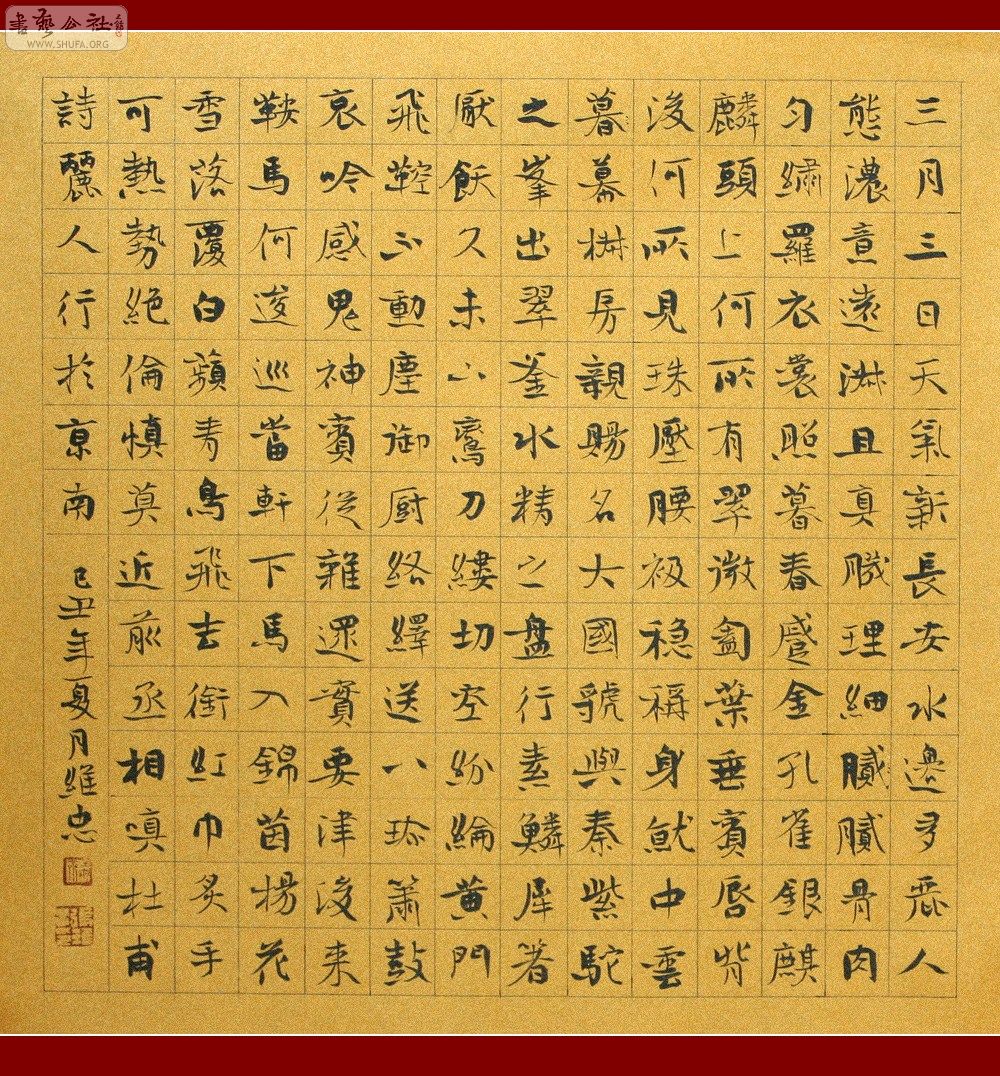 書藝公社
WWW.SHUFA.ORG
三月三日天氣新長安水邊多麗人
態濃意遠淋且真職理細膩膩骨肉
匀繡羅衣裳照暮春蹙金孔雀銀麒
麟頭上何所有翠微匎葉垂賓唇背
後何所見珠壓腰衱穏稱身就中雲
暮幕椒房親賜名大國虢與秦紫駝
之峯出翠釜水精之盤行素鱗犀箸
厭飫久未下鸞刀縷切空紛綸黄門
飛鞚不動塵御厨絡繹送八珎簫鼓
哀吟感鬼神賓從雜遝實要津後来
鞍馬何逡巡當軒下馬入錦茵楊花
雪落覆白蘋青鳥飛去銜紅巾炙手
可熱勢絕倫慎莫近前丞相嗔杜甫
詩麗人行於京南己丑年夏月維忠